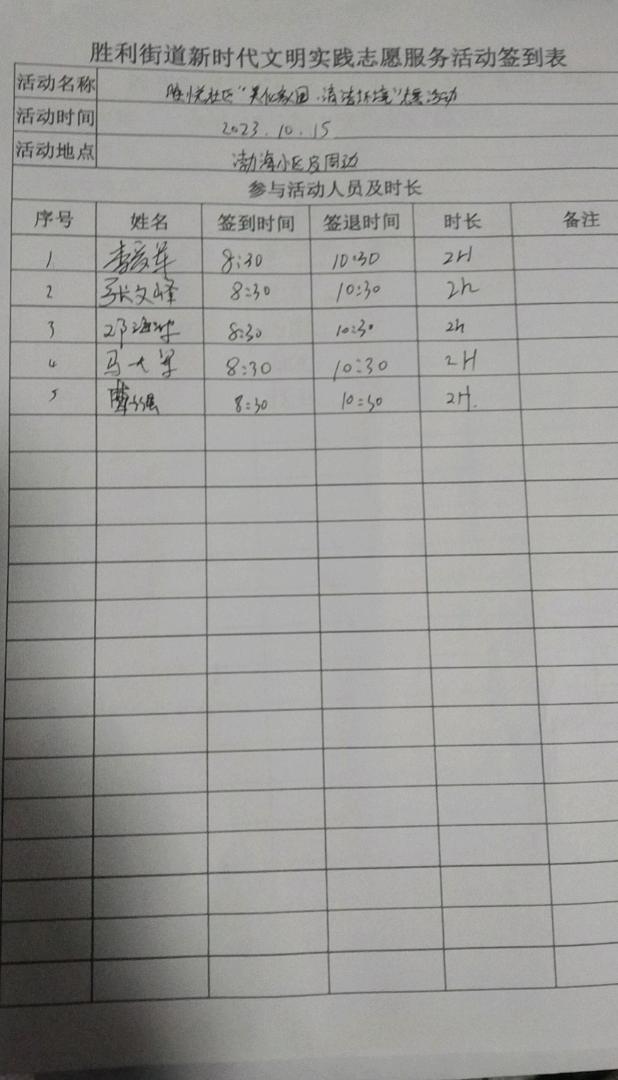 胜利街道新时代文明实践志愿服务活动签到表
活动名称 胜悦社区“美化家园、清洁环境”志愿活动
活动时间 2023.10.15
活动地点 渤海小区及周边
参与活动人员及时长
序号 姓名 签到时间 签退时间 时长 备注
1 8:30 10:30 2H
2 张文峰 8:30 10:30 2h
3 邓海 8:30 10:30 2h
4 马大军 8:30 10:30 2H
5 8:30 10:30 2H.